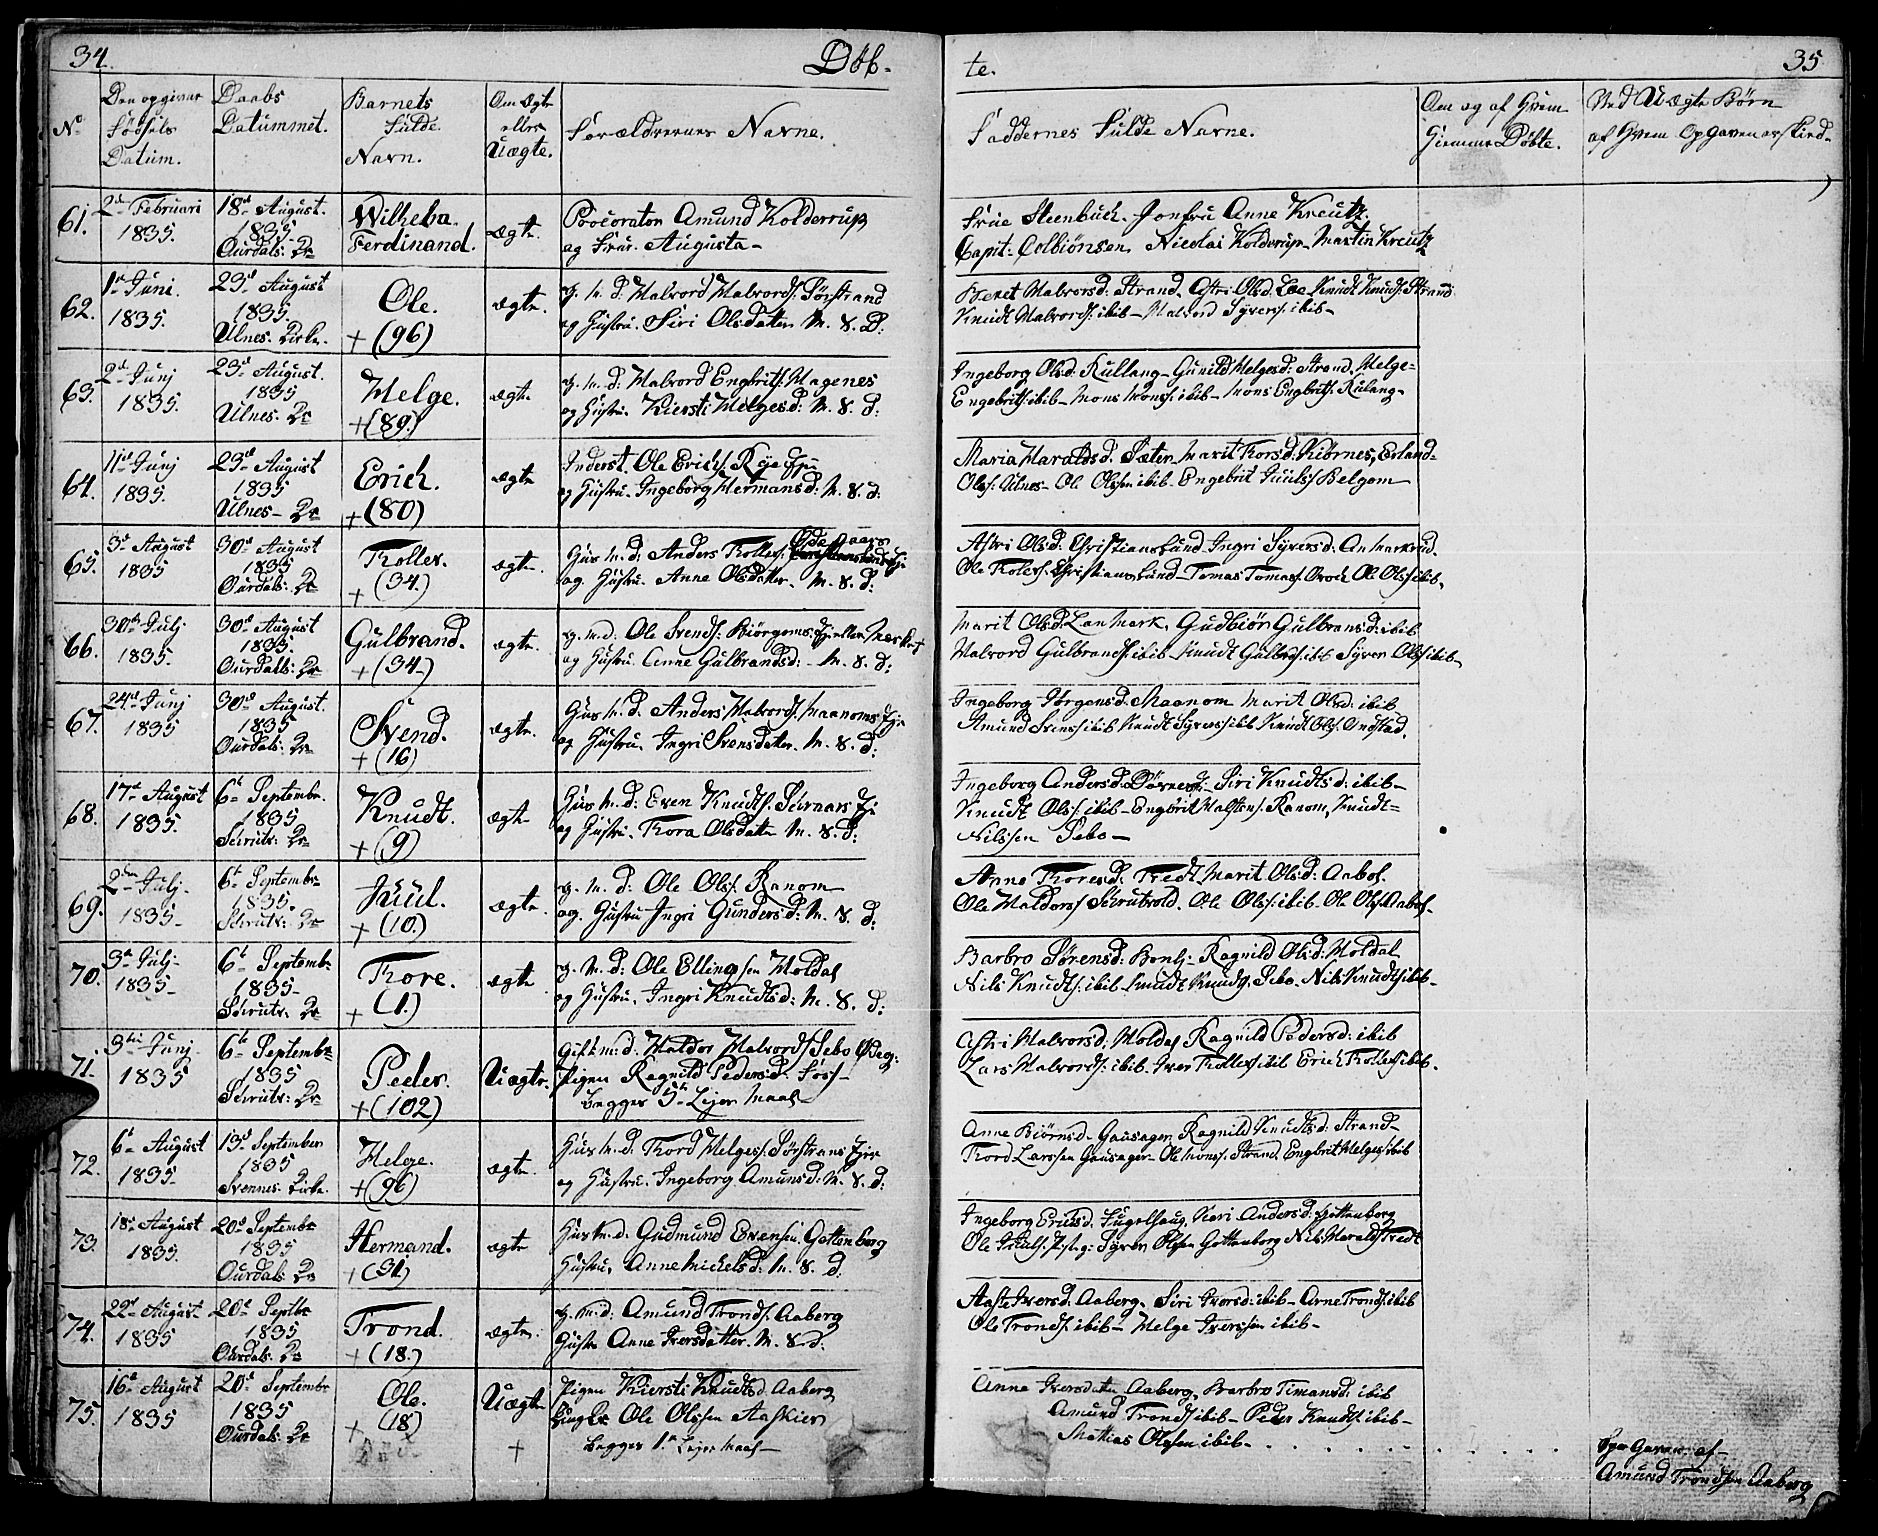 34.
Döb-
te.
35
No
Den opgivne
Födsels
Datum.
Daabs
Datummet.
Barnets
Fulde
Navn.
Om Ægte
eller
Uægte.
Forældrernes Navne.
Faddernes Fulde Navne.
Om og af Hvem
Hiemme Döbte.
Ved Uægte Börn
af Hvem Opgaven er skied.
61.
2d Februari
1835.
18d August.
1835.
Ourdals: K
Wilhelm
Ferdinand.
ægte.
Procurator Amund Kolderrup
og Frue. Augusta-
Frue Steenbuch. Jomfru Anne Kreutz.
Capit: Colbiönsen, Nicolai Kolderup- Martin Kreutz
62.
1te Juni.
1835.
23d August
1835.
Ulnes- Kirke.
Ole.
+ (96)
ægte.
g. M. d: Halvord Halvords: Sörstrand
og Hustru. Siri Olsdatter M. S. D:
Beret Halvorsd. Strand, Astri Olsd. Knudt Knuds: Strand
Knudt Halvords: ibib- Halvord Syvers: ibib-
63.
2d Junj
1835.
23d August.
1835
Ulnes. K
Helge.
+(89.)
ægte
g. M. d: Halvord Engbrits: Magenes
og Hustru. Kiersti Helgesd: M. S. d:
Ingeborg Olsd. Rullang- Gunild Helgesd: Strand, Helge-
Engebrits: ibib- Mons Mons: ibib- Mons Engbrits: Rulang-
64.
11d Junj
1835.
23d August
1835
Ulnes- K
Erich.
+(80)
ægte
Inderst. Ole Erichs. Rye Eje
og Hustru. Ingeborg Hermansd: M. S. d:
Maria Haraldsd. Sæter- Marit Torsd. Kiörnes, Erland-
Ols: Ulnes- Ole Olsen ibib- Engebrit Juuls: Belgom
65.
3d August
1835
30d August
1835
Ourdals: K
Tholler.
+ (34.)
ægte.
Huus M. d: Anders Thollers: Ødegaars Eje
og Hustru. Anne Olsdatter. M. S. d:
Astri Olsd: Christianslund- Ingri Syversd:
Ole Tollefs: Christianslund- Tomas Tomas: Ole Ols: ibib-
66.
30te Julj
1835.
30d August
1835.
Ourdals: K
Gulbrand.
+(34)
ægte.
g. m. d: Ole Svends:
og Hustru. Anne Gulbrandsd:- M. S. d:
Marit Olsd: Gudbiör Gulbransd: ibib
Halvord Gulbrands: ibib- Knudt Gulbrs: ibib Syver Ols: ibib-
67.
24d Junj
1835
30d August.
1835
Ourdals: K
Svend.
+(16)
ægte.
Huus M. d. Anders Halvords: Maanoms Eje
og Hustru. Ingri Svensdatter. M. S. d:
Ingeborg Jörgensd. Maanom Marit Olsd. ibib
Amund Svens: ibib Knudt Syvers: ibib Knudt Ols:
68.
17d August
1835.
6te Septembr.
1835
Skruts: K
Knudt.
+(9)
ægte
Huus M. d: Even Knudts: Eje
og Hustru. Thora Olsdatter M. S. d:
Ingeborg Andersd: Siri Knudtsd: ibib-
Knudt Ols: ibib- Engbrit Ranom, Knudt-
Nilssen Sebo-
69.
2den Julj.
1835-
6te Septembr
1835.
Skruts- K
Juul.
+ (10.)
ægte.
g. M. d: Ole Ols: Ranom
og. Hustru Ingri Gundersd: M. S. d:
Anne Thoresd. Tredt Marit Olsd: Aabol.
Ole Haldors: Skrutvold. Ole Ols: ibib. Ole Ols: Aabol-
70.
3d Julj-
1835-
6te Septembr.
1835-
Skruts. K
Thore.
+ (1.)
ægte
g. M. d: Ole Ellingsen Moldal
og Hustru. Ingri Knudtsd: M. S. d:
Barbro Sörensd: Ragnild Olsd: Moldal
Nils Knudts: ibib- Knudt Knuds. Sebo. Nils Knudts: ibib-
71.
3die Junj-
1835
6te Septembr
1835
Skruts: K
Peder.
+(102)
Uægte.
Gift m: d. Haldor Halvords: Sebo Ødeg:
Pigen Ragnild Pedersd: Foss-
Begges 5te Leier Maal-
Astri Halvorsd: Moldal Ragnild Pedersd: ibib
Lars Halvords: ibib- Iver Thollefs: ibib Erich Thollefs: ibib.
72.
6te August
1835-
13d September
1835
Svennes- Kirke.
Helge.
+(96)
ægte.
Huus M. d. Thord Helges: Sörstrans Eje
og Hustru. Ingeborg Amunsd: M. S. d:
Anne Biörnsd- Gausager Ragnild Knudtsd: Strand-
Thord Larssen Gausager- Ole Mons: Strand. Engbrit Helges: ibib
73.
18d August
1835.
20d Septembr
1835
Ourdals: K
Hermand.
+(31)
ægte
Huus M. d. Gudmund Evensen. Gottenborg
Hustru, Anne Nichelsd: M. S. d:
Ingeborg Erichsd: Fugelhaug, Kari Andersd: Gottenborg
Syver Olsen Gottenborg Nils Haralds: Tredt
74.
22d August-
1835
20d Septbr
1835
Ourdals: K
Trond.
+(18.)
ægte.
g. m: d: Amund Tronds: Aaberg
Hustru Anne Iversdatter. M. S. d:
Aaste Iversd: Aaberg. Siri Iversd: ibib- Arne Tronds: ibib
Ole Tronds: ibib- Helge Iverssen ibib-
75.
16d August
1835
20d Septembr
1835
Ourdals: K
Ole.
+ (18)
Uægte
+
Pigen Kiersti Knudtsd. Aaberg
Ungkr Ole Olssen Aaskier
Begges 1te Leier Maal-
Anne Iversdatter Aaberg, Barbro Timansd: ibib
Amund Tronds: ibib- Peder Knudts: ibib-
Mathias Olssen ibib-
Opgaven af-
Amund Trondsen Aaberg